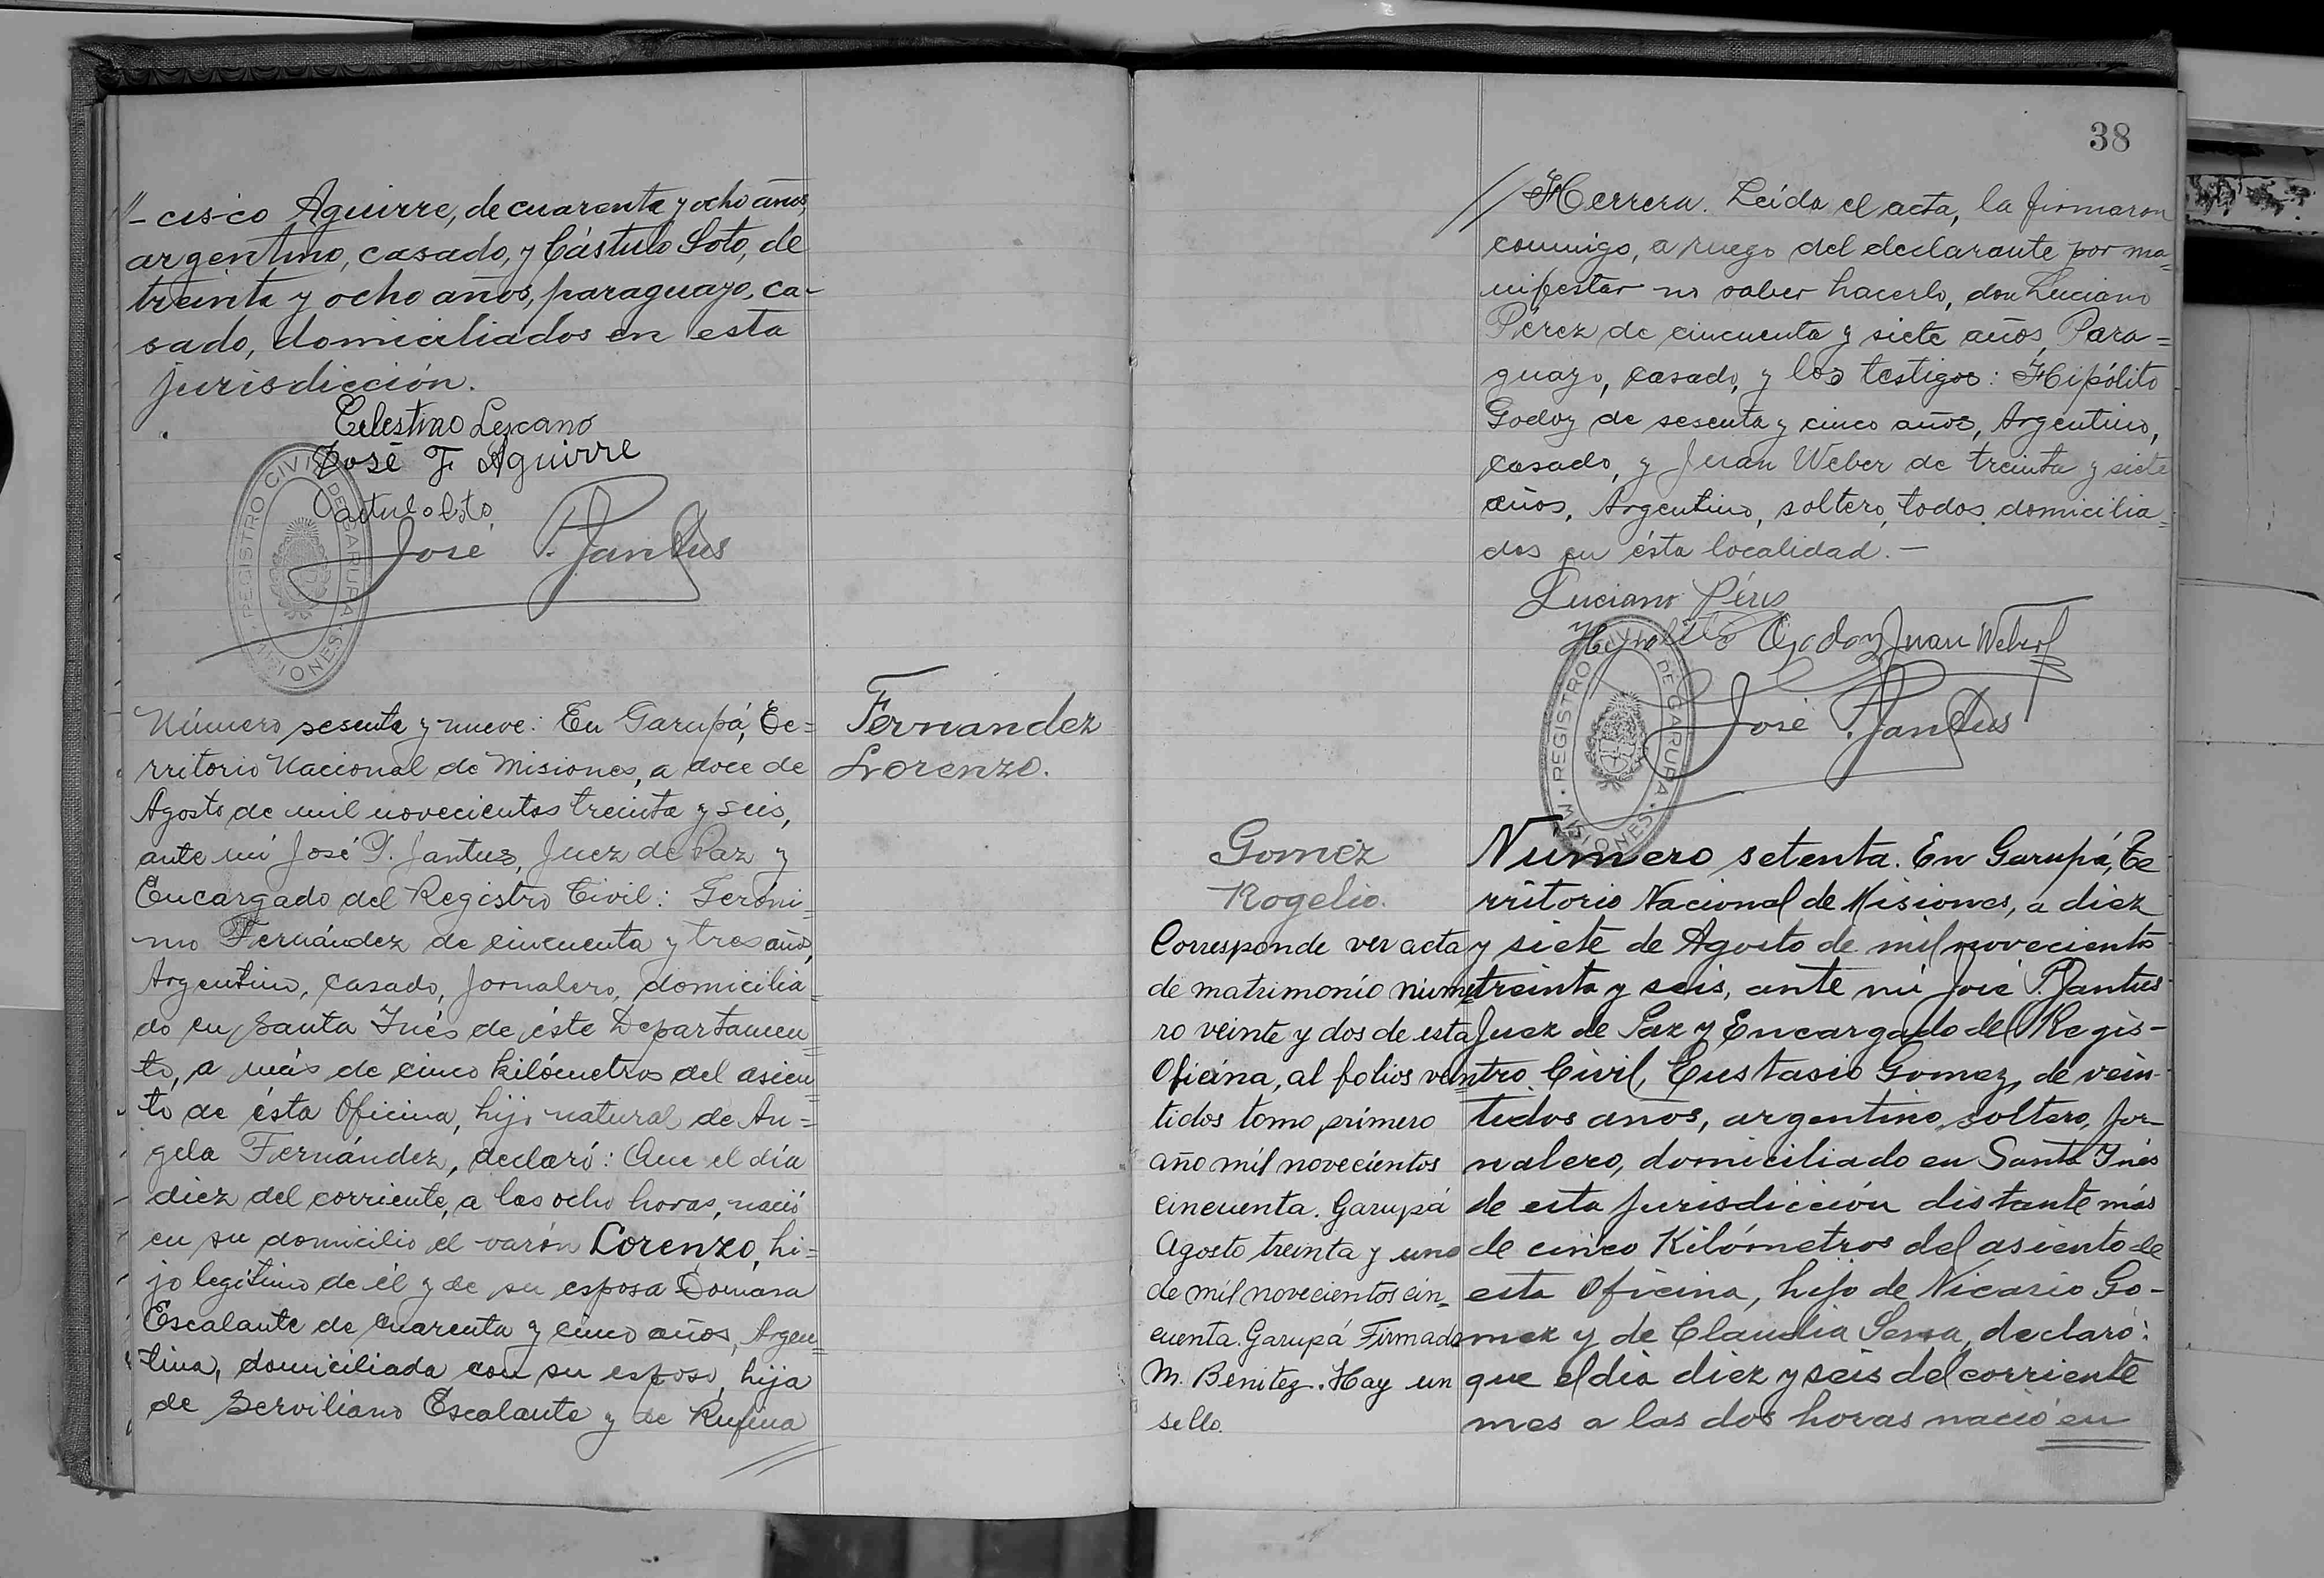 "- cisco Aguirre, de cuarenta y ocho años,
argentino, casado, y Cástulo Soto, de
treinta y ocho años, paraguayo, ca-
sado, domiciliados en esta
jurisdicción.
Celestino Lezcano
José F Aguirre
José P. Jantus
REGISTRO CIVIL DE GARUPA · MISIONES ·
Número sesenta y nueve: En Garupá, Te=
rritorio Nacional de Misiones, a doce de
Agosto de mil novecientos treinta y seis,
ante mi José P. Jantus, Juez de Paz y
Encargado del Registro Civil: Geróni=
mo Fernández de cincuenta y tres años,
Argentino, casado, jornalero, domicilia=
do en Santa Inés de éste Departamen=
to, a más de cinco kilómetros del asien=
to de ésta Oficina, hijo natural de An=
gela Fernández, declaró: Que el día
diez del corriente, a las ocho horas, nació
en su domicilio el varón Lorenzo, hi=
jo legítimo de él y de su esposa
Escalante de cuarenta y cinco años, Argen=
tina, domiciliada con su esposo, hija
de Serviliano Escalante y de Rufina
//
Fernandez
Lorenzo.
38
// Herrera. Leída el acta, la firmaron
conmigo, a ruego del declarante por ma=
nifestar no saber hacerlo, don Luciano
Pérez de cincuenta y siete años, Para=
guayo, casado, y los testigos: Hipólito
Godoy de sesenta y cinco años, Argentino,
casado, y Juan Weber de treinta y siete
años, Argentino, soltero, todos domicilia=
dos en ésta localidad. -
Luciano Pérez
Hipolito Godoy Juan Weber
José P. Jantus
REGISTRO CIVIL DE GARUPA · MISIONES ·
Gomez
Rogelio.
Corresponde ver acta
de matrimonio núme=
ro veinte y dos de esta
Oficina, al folios vein=
tidos tomo primero
año mil novecientos
cincuenta. Garupá
Agosto treinta y uno
de mil novecientos cin=
cuenta. Garupá Firmado
M. Benitez. Hay un
sello.
Número setenta. En Garupá, Te
rritorio Nacional de Misiones, a diez
y siete de Agosto de mil novecientos
treinta y seis, ante mi José P. Jantus
Juez de Paz y Encargado del Regis-
tro Civil, Eustasio Gomez, de vein-
tidos años, argentino, soltero, jor-
nalero, domiciliado en Santa Inés
de esta jurisdicción distante más
de cinco Kilómetros del asiento de
esta Oficina, hijo de Nicasio Go-
mez y de Claudia Sena, declaró:
que el día diez y seis del corriente
mes a las dos horas nació en